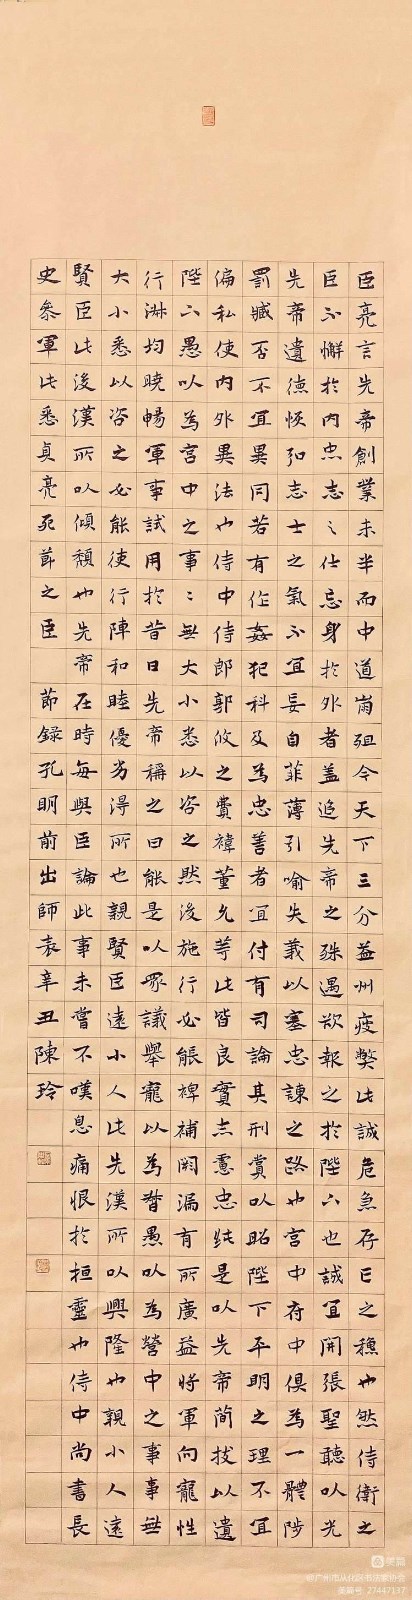 臣亮言先帝創業未半而中道崩殂今天下三分益州疲弊此誠危急存亡之穐也然侍衛之
臣不懈於内忠志〻仕忘身於外者盖追先帝之殊遇欲報之於陛下也誠宜開張聖聽以光
先帝遺德恢弘志士之氣不宜妄自菲薄引喻失義以塞忠諫之路也宮中府中俱為一體陟
罰臧否不宜異同若有作姦犯科及為忠善者宜付有司論其刑賞以昭陛下平明之理不宜
偏私使内外異法也侍中侍郎郭攸之費禕董允等此皆良實志慮忠純是以先帝簡拔以遺
陛下愚以為宮中之事〻無大小悉以咨之然後施行必能裨補闕漏有所廣益將軍向寵性
行淋均曉暢軍事試用於昔日先帝稱之曰能是以眾議舉寵以為督愚以為營中之事事無
大小悉以咨之必能使行陣和睦優劣得所也親賢臣遠小人此先漢所以興隆也親小人遠
賢臣此後漢所以傾頹也先帝在時每與臣論此事未嘗不嘆息痛恨於桓靈也侍中尚書長
史參軍此悉貞亮死節之臣 節録孔明前出師表辛丑陳玲
美篇
@广州市从化区书法家协会
美篇号: 27447137